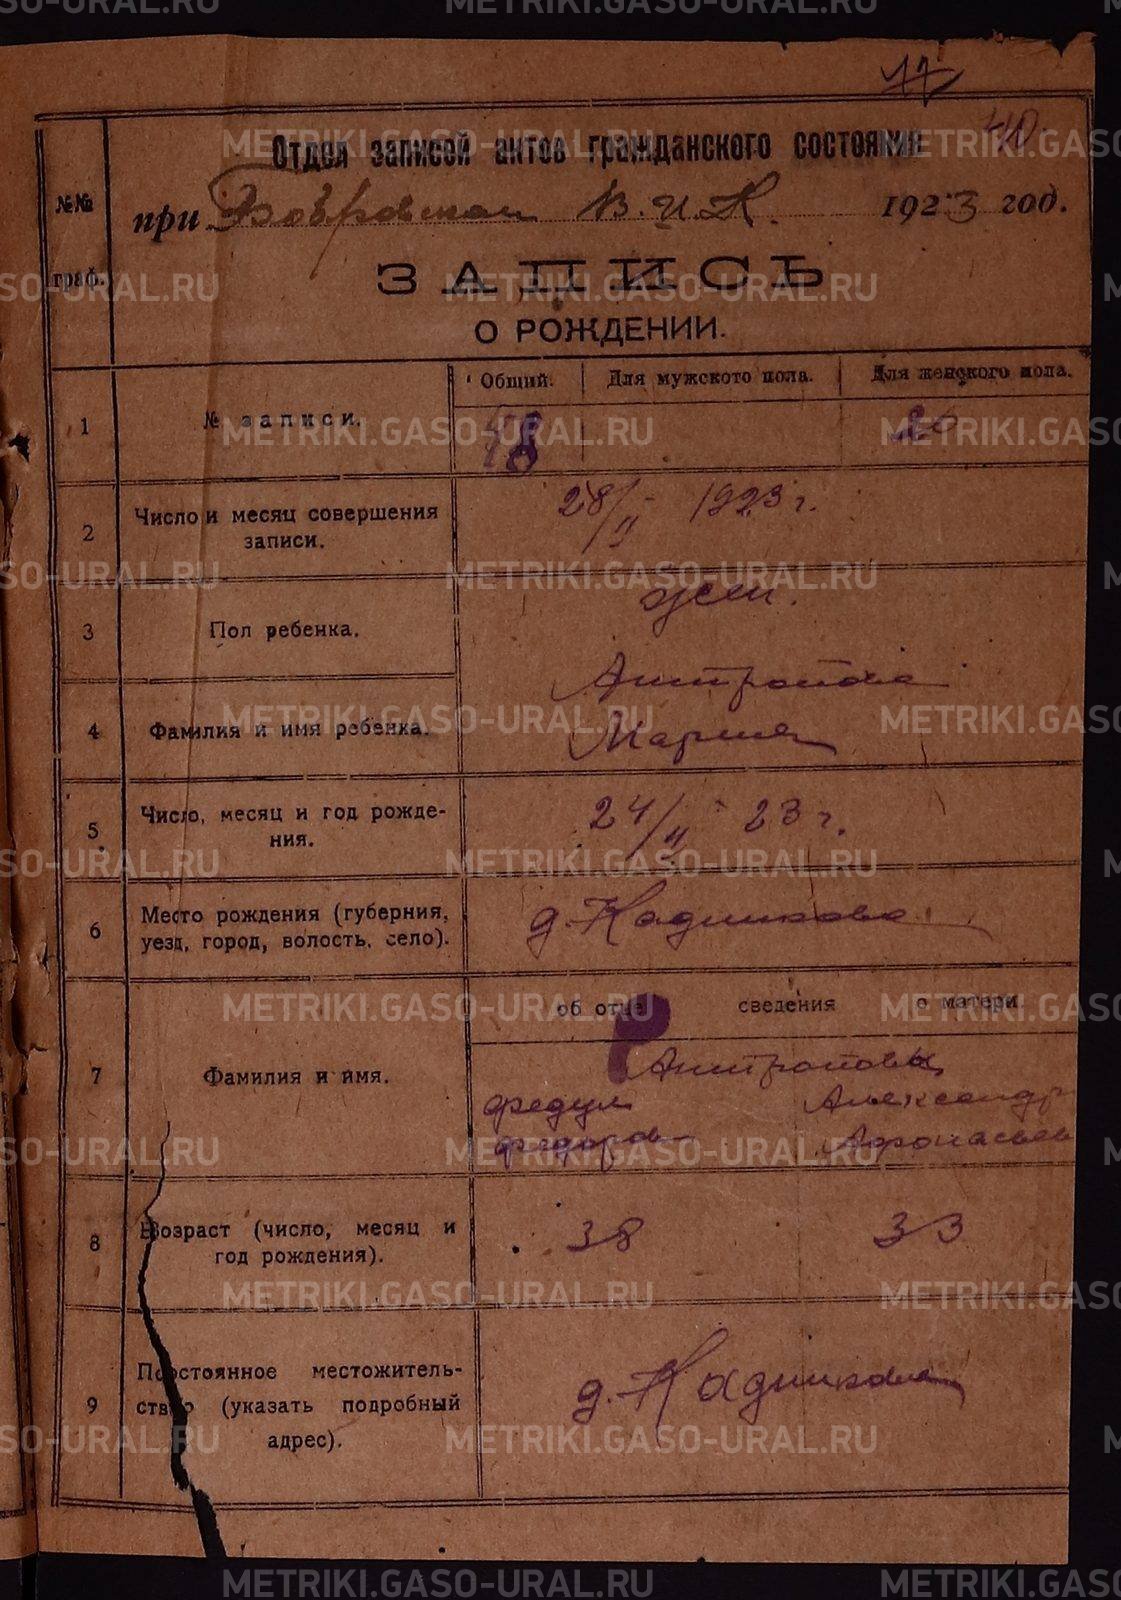 METRIKI.GASO-URAL.RU
77
40.
Отдел записей актов гражданского состояния
при Бобровском В.И.К. 1923 год.
№№ граф.
ЗАПИСЬ
О РОЖДЕНИИ.
Общий. Для мужского пола. Для женского пола.
1 № записи. 48 20
2 Число и месяц совершения записи. 28/II - 1923 г.
3 Пол ребенка. жен.
4 Фамилия и имя ребенка. Антропова
Мария
5 Число, месяц и год рождения. 24/II - 23 г.
6 Место рождения (губерния, уезд, город, волость, село). д. Кадникова
об отце сведения о матери
7 Фамилия и имя. Антроповы
Федул Александр
Федоров Афонасьев
8 Возраст (число, месяц и год рождения). 38 33
9 Постоянное местожительство (указать подробный адрес). д. Кадникова